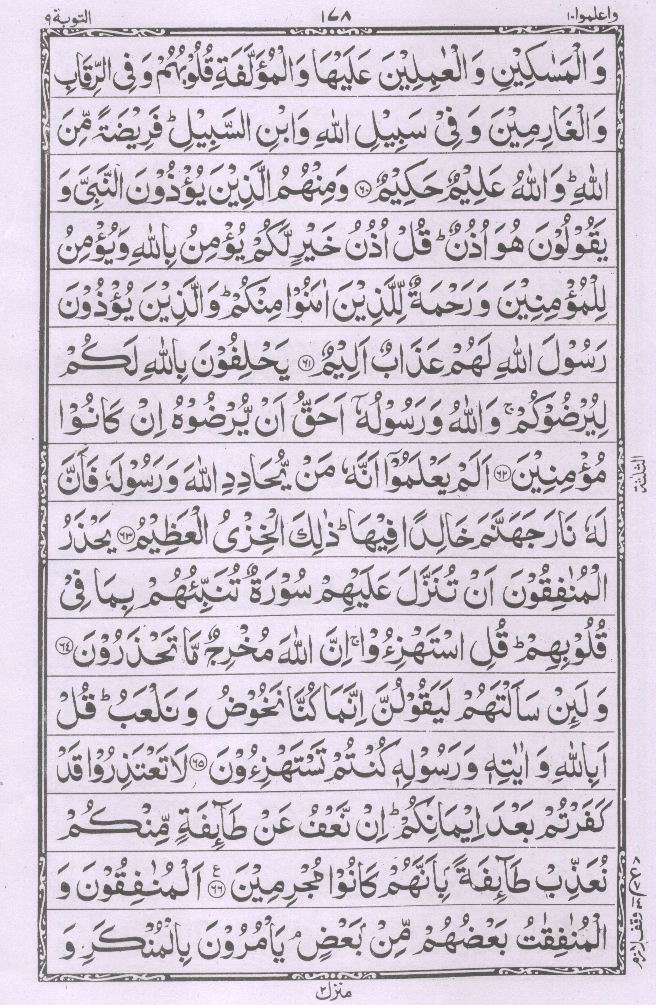 واعلموا ١٠ ١٧٨ التوبة ٩
وَالْمَسٰكِيْنِ وَالْعٰمِلِيْنَ عَلَيْهَا وَالْمُؤَلَّفَةِ قُلُوْبُهُمْ وَفِى الرِّقَابِ
وَالْغَارِمِيْنَ وَفِىْ سَبِيْلِ اللّٰهِ وَابْنِ السَّبِيْلِ ؕ فَرِيْضَةً مِّنَ
اللّٰهِ ؕ وَاللّٰهُ عَلِيْمٌ حَكِيْمٌ ﴿٦٠﴾ وَمِنْهُمُ الَّذِيْنَ يُؤْذُوْنَ النَّبِىَّ وَ
يَقُوْلُوْنَ هُوَ اُذُنٌ ؕ قُلْ اُذُنُ خَيْرٍ لَّكُمْ يُؤْمِنُ بِاللّٰهِ وَيُؤْمِنُ
لِلْمُؤْمِنِيْنَ وَرَحْمَةٌ لِّلَّذِيْنَ اٰمَنُوْا مِنْكُمْ ؕ وَالَّذِيْنَ يُؤْذُوْنَ
رَسُوْلَ اللّٰهِ لَهُمْ عَذَابٌ اَلِيْمٌ ﴿٦١﴾ يَحْلِفُوْنَ بِاللّٰهِ لَكُمْ
لِيُرْضُوْكُمْ ۚ وَاللّٰهُ وَرَسُوْلُهٗۤ اَحَقُّ اَنْ يُّرْضُوْهُ اِنْ كَانُوْا
مُؤْمِنِيْنَ ﴿٦٢﴾ اَلَمْ يَعْلَمُوْۤا اَنَّهٗ مَنْ يُّحَادِدِ اللّٰهَ وَرَسُوْلَهٗ فَاَنَّ
لَهٗ نَارَ جَهَنَّمَ خَالِدًا فِيْهَا ؕ ذٰلِكَ الْخِزْىُ الْعَظِيْمُ ﴿٦٣﴾ يَحْذَرُ
الْمُنٰفِقُوْنَ اَنْ تُنَزَّلَ عَلَيْهِمْ سُوْرَةٌ تُنَبِّئُهُمْ بِمَا فِىْ
قُلُوْبِهِمْ ؕ قُلِ اسْتَهْزِءُوْا ۚ اِنَّ اللّٰهَ مُخْرِجٌ مَّا تَحْذَرُوْنَ ﴿٦٤﴾
وَلَئِنْ سَاَلْتَهُمْ لَيَقُوْلُنَّ اِنَّمَا كُنَّا نَخُوْضُ وَنَلْعَبُ ؕ قُلْ
اَبِاللّٰهِ وَاٰيٰتِهٖ وَرَسُوْلِهٖ كُنْتُمْ تَسْتَهْزِءُوْنَ ﴿٦٥﴾ لَا تَعْتَذِرُوْا قَدْ
كَفَرْتُمْ بَعْدَ اِيْمَانِكُمْ ؕ اِنْ نَّعْفُ عَنْ طَآئِفَةٍ مِّنْكُمْ
نُعَذِّبْ طَآئِفَةًۢ بِاَنَّهُمْ كَانُوْا مُجْرِمِيْنَ ﴿٦٦﴾ ع اَلْمُنٰفِقُوْنَ وَ
الْمُنٰفِقٰتُ بَعْضُهُمْ مِّنْۢ بَعْضٍ ۘ يَاْمُرُوْنَ بِالْمُنْكَرِ وَ
منزل ٢
الثلثة
وقف لازم